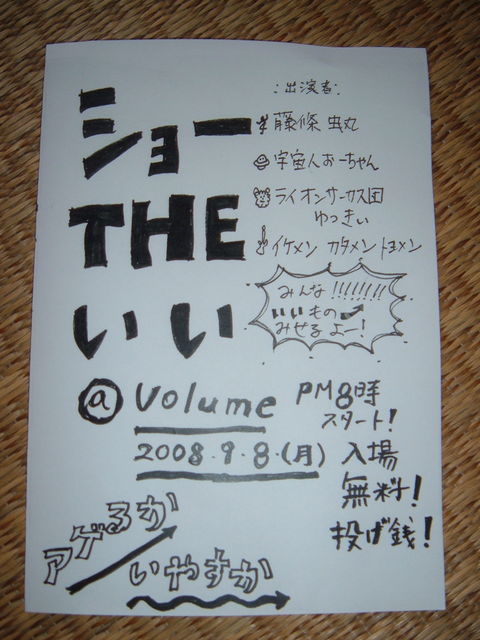 ショー
THE
いい
:出演者:
藤條 虫丸
宇宙人おーちゃん
ライオンサーカス団
ゆっきぃ
イケメン カタメン トヨメン
みんな!!!!!!!!
いいもの
みせるよー!
@ Volume
PM8時
スタート!
2008.9.8.(月)
入場
無料!
投げ銭!
アゲるか
いやすか